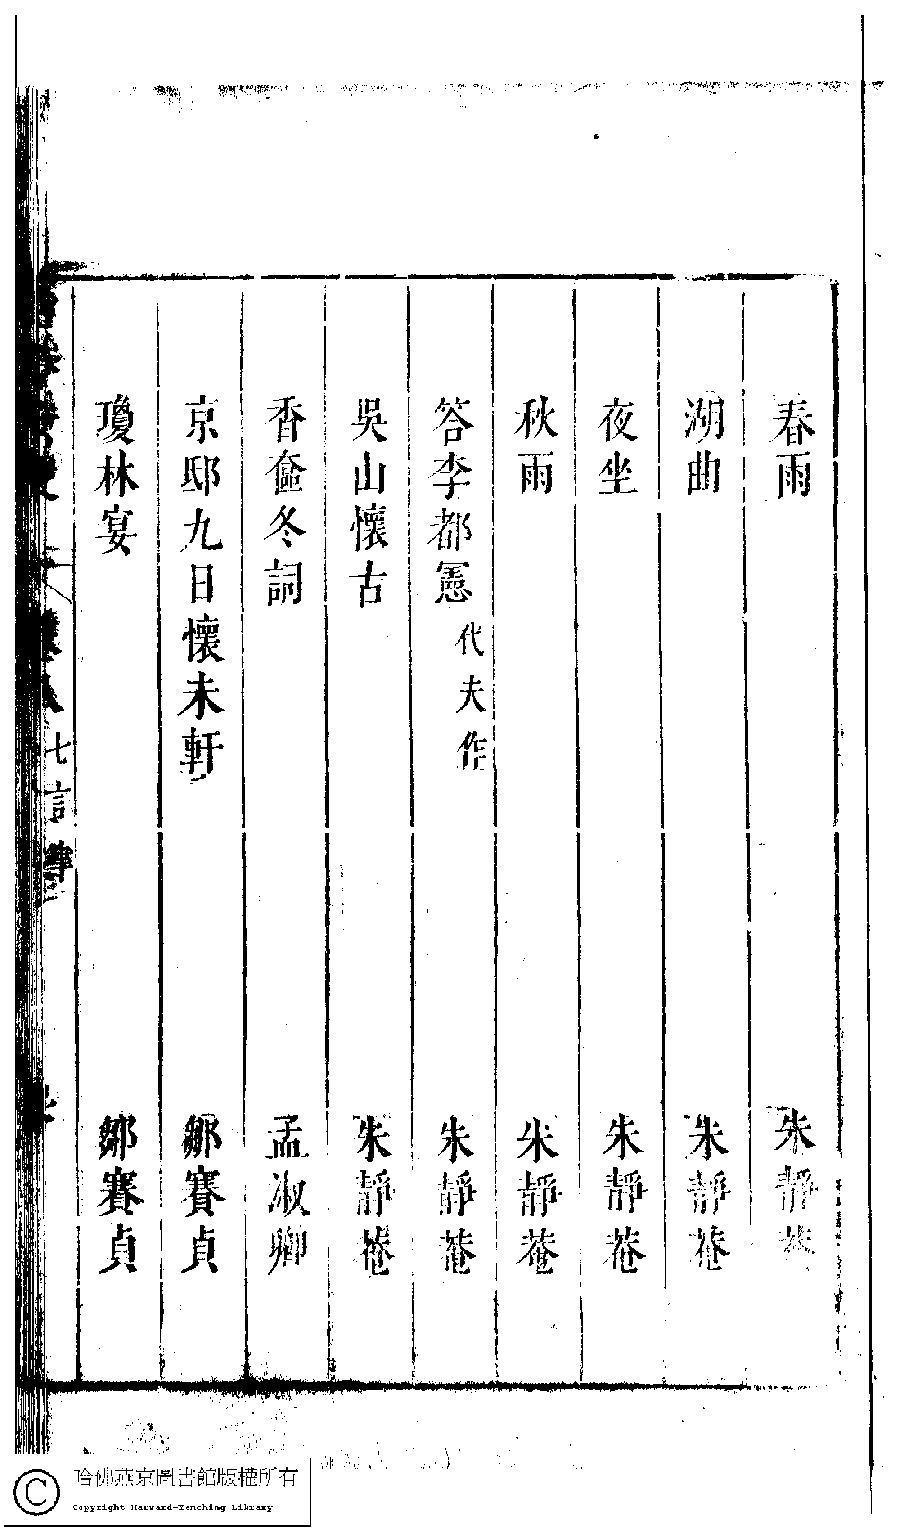 春雨 朱靜菴
湖曲 朱靜菴
夜坐 朱靜菴
秋雨 朱靜菴
答李都憲 代夫作 朱靜菴
吳山懷古 朱靜菴
香奩冬詞 孟淑卿
京邸九日懷未軒 鄒賽貞
瓊林宴 鄒賽貞
七言律
哈佛燕京圖書館版權所有
Copyright Harvard-Yenching Library